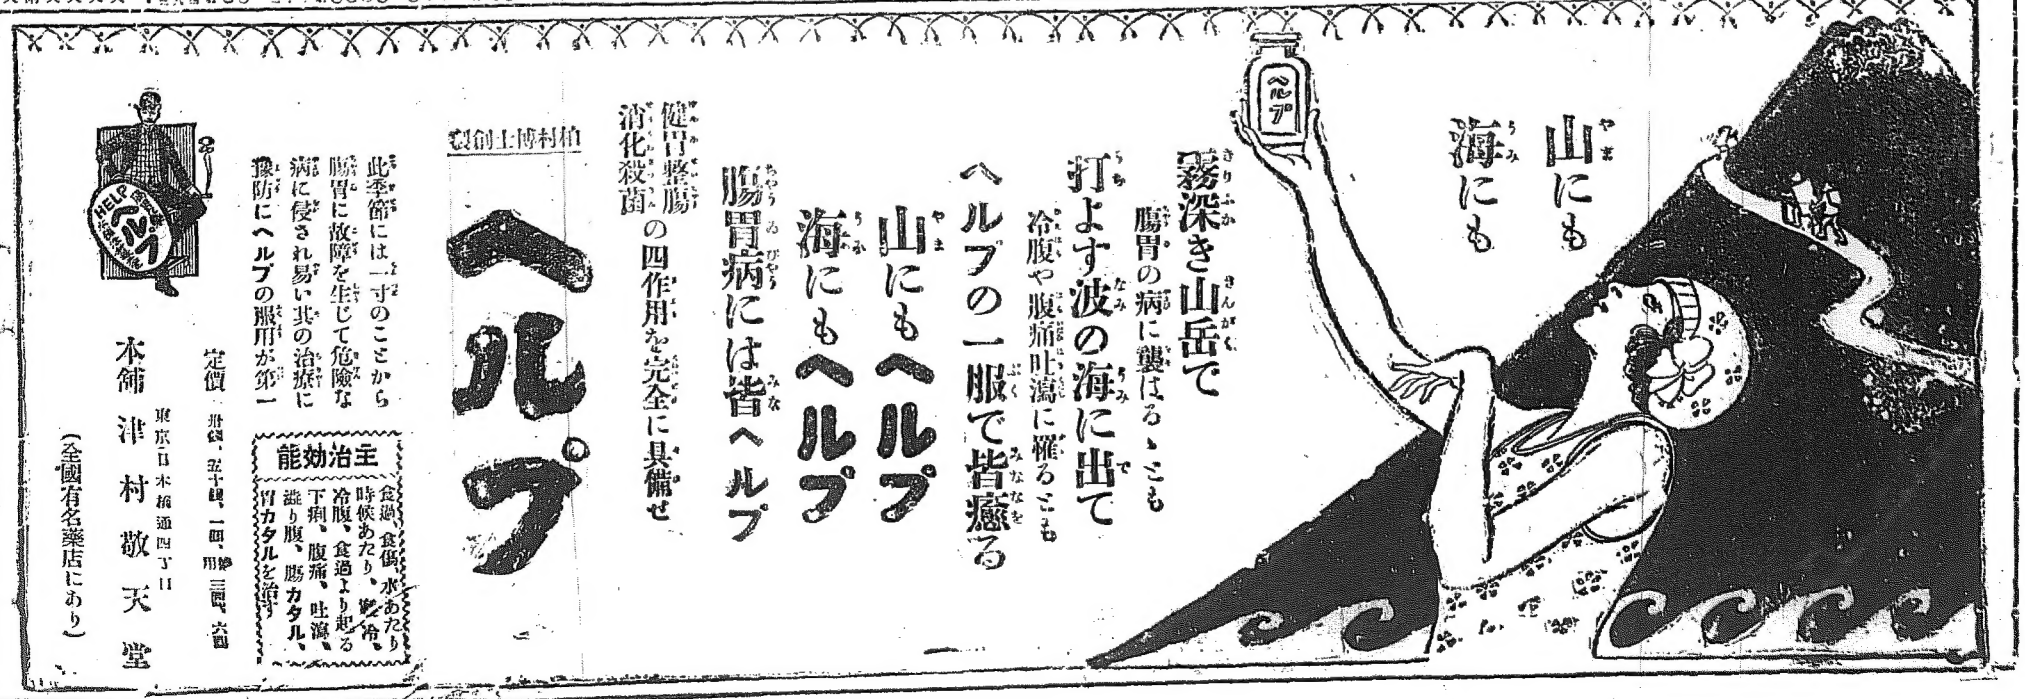 山にも
海にも
ヘルプ
霧深き山岳で
腸胃の病に襲はるゝとも
打よす波の海に出て
冷腹や腹痛吐瀉に罹るとも
ヘルプの一服で皆癒る
山にもヘルプ
海にもヘルプ
腸胃病には皆ヘルプ
健胃整腸
消化殺菌
の四作用を完全に具備せ
柏村博士創製
ヘルプ
此季節には一寸のことから
腸胃に故障を生じて危險な
病に侵され易い其の治療に
豫防にヘルプの服用が第一
主治効能
食過、食傷、水あたり
時候あたり、寢冷、
冷腹、食過より起る
下痢、腹痛、吐瀉、
澁り腹、腸カタル、
胃カタルを治す
HELP
ヘルプ
定價
東京日本橋通四丁目
本舖 津村敬天堂
(全國有名藥店にあり)